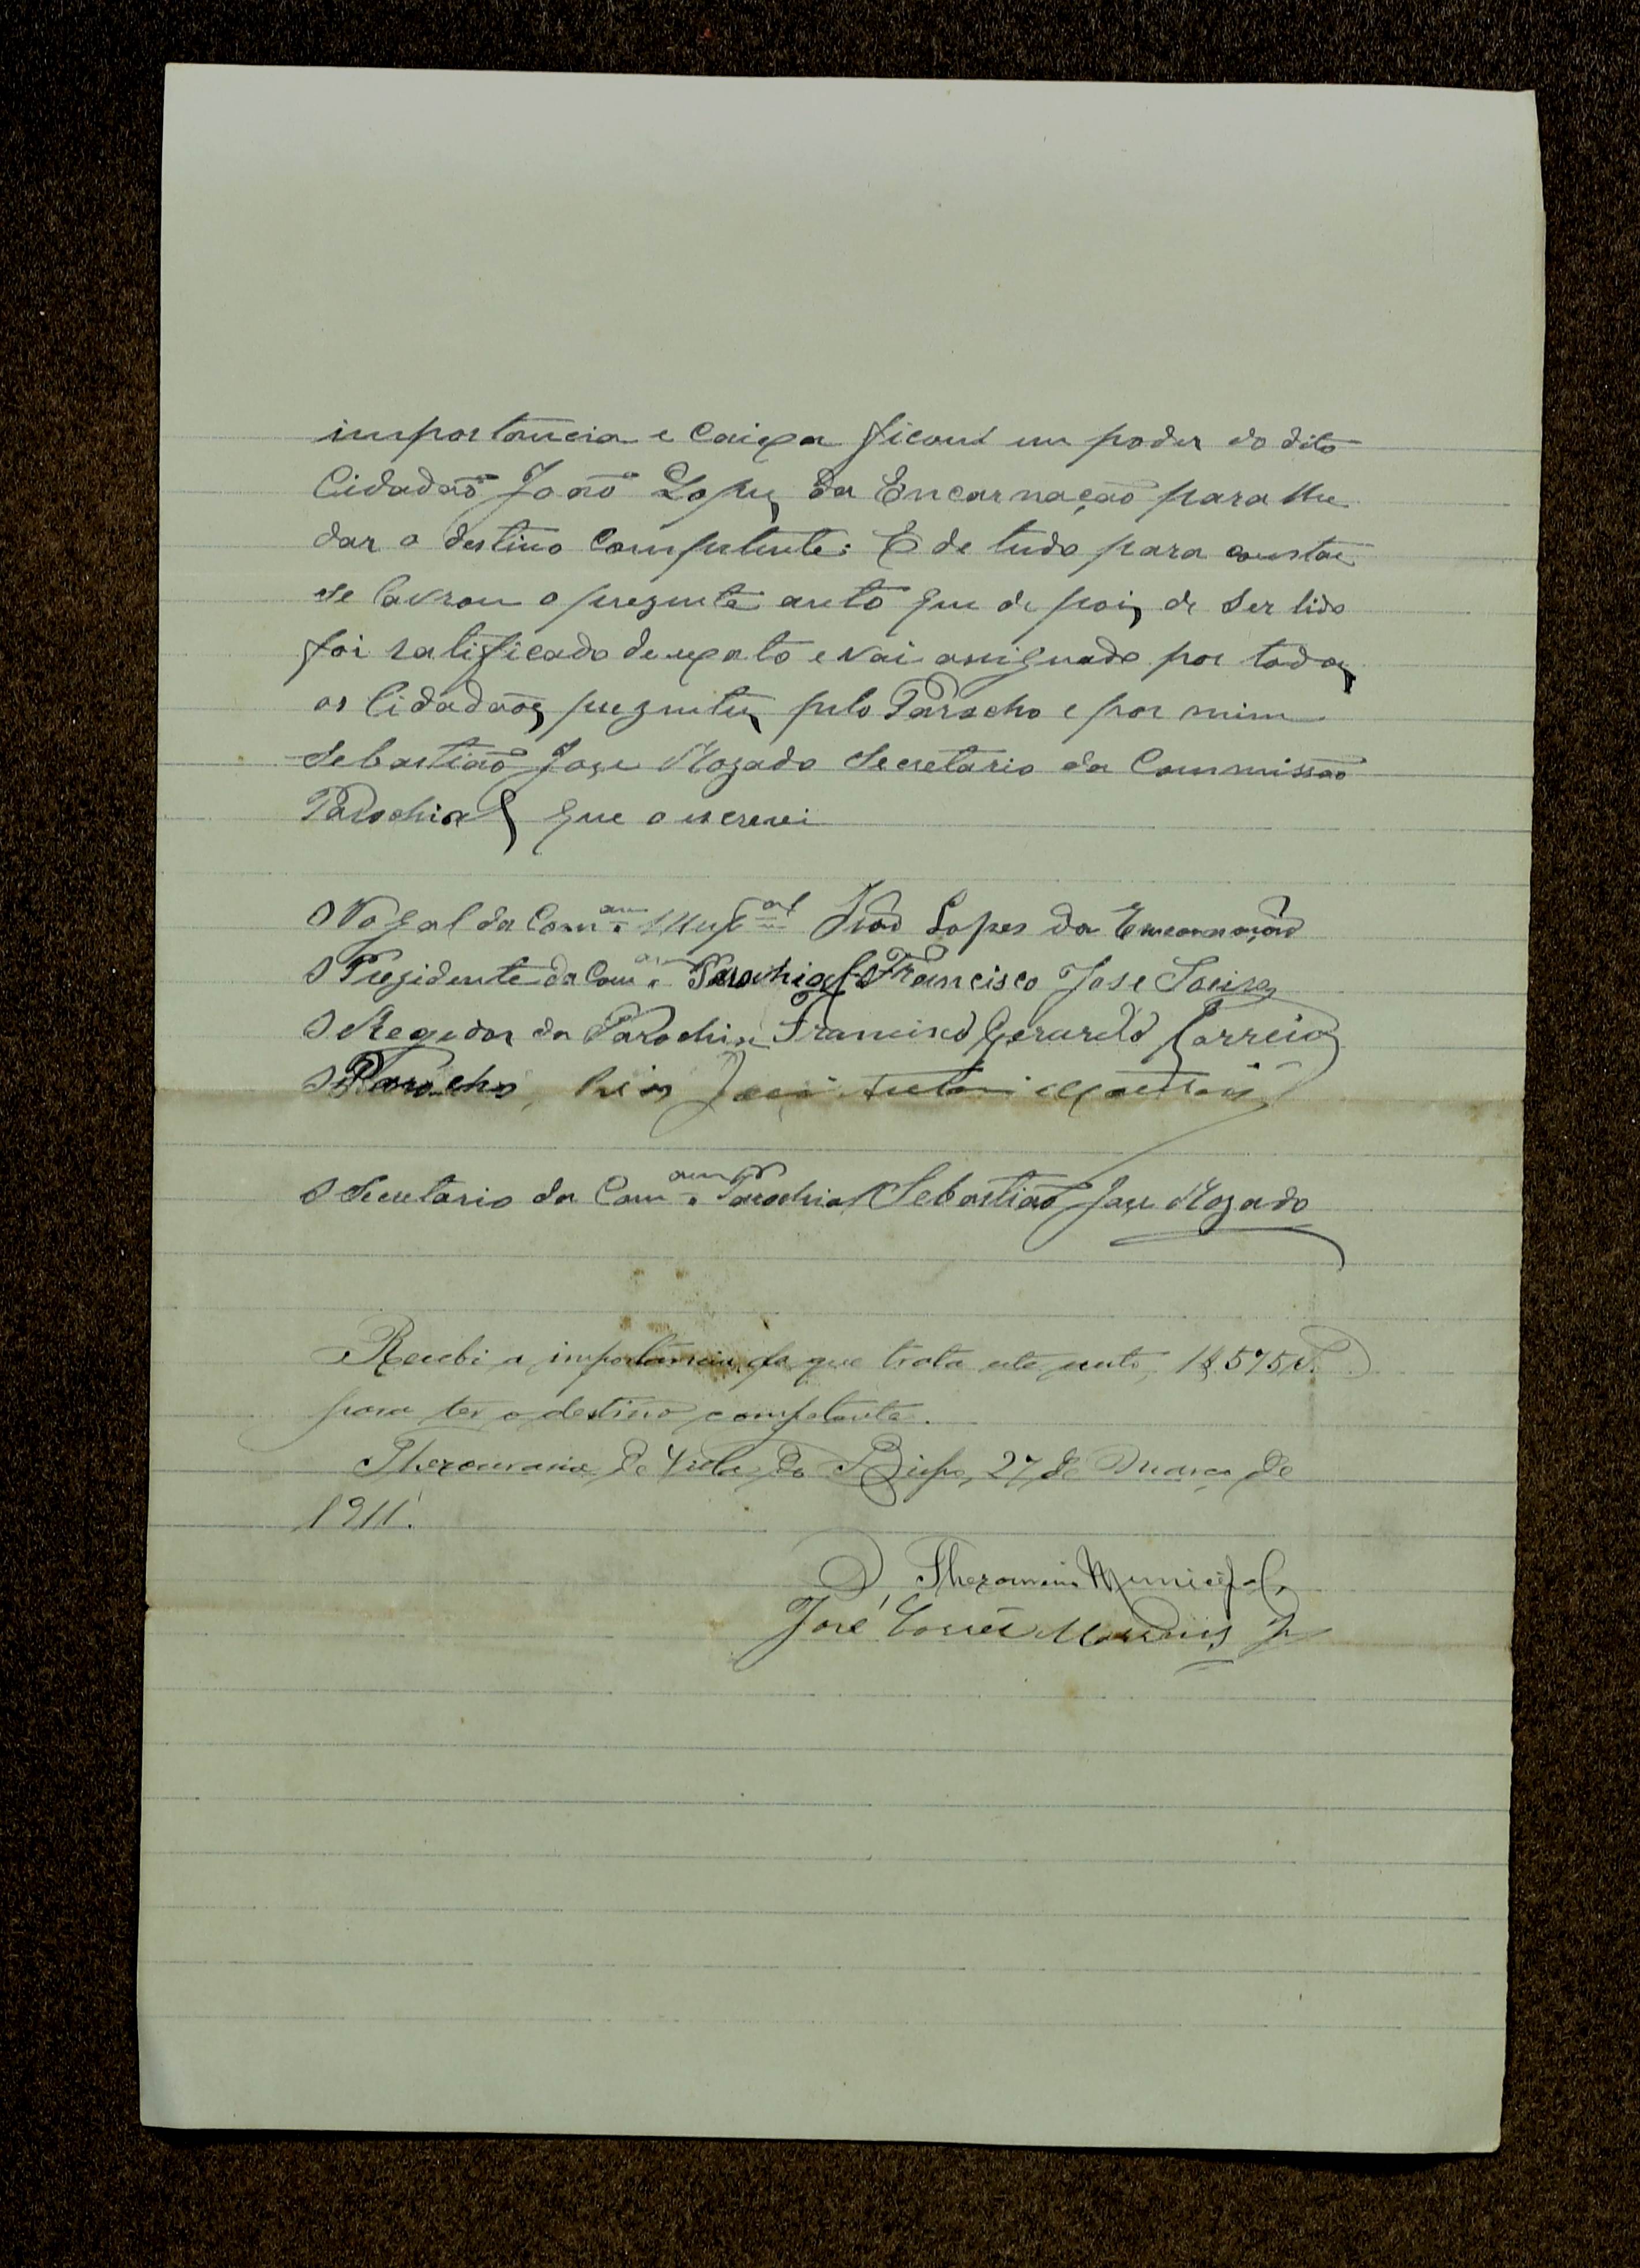 importancia e caixa ficam em poder do dito
Cidadão João Lopes da Encarnação para lhe
dar o destino Competente: E de tudo para constar
se lavrou o prezente auto que depois de ser lido
foi ratificado de exato e vai assignado por todos
os Cidadãos prezentes pelo Parocho e por mim
Sebastião Joze Rozado Secretario da Commissão
Parochial que o escrevi
O Vogal da Com.am Mupal João Lopes da Encarnação
O Prezidente da Com.am Parochial Francisco Jose
O Regedor da Parochia Francisco Gerardo Correia
O Parocho, José Antonio
O Secretario da Com.am Parochial Sebastião Joze Rozado
Recebi a importancia de que trata este auto, 1$575 rs.
para ter o destino competente.
Thezouraria de Villa do Bispo, 27 de Março de
1911.
O Thezoureiro Municipal,
José Jr